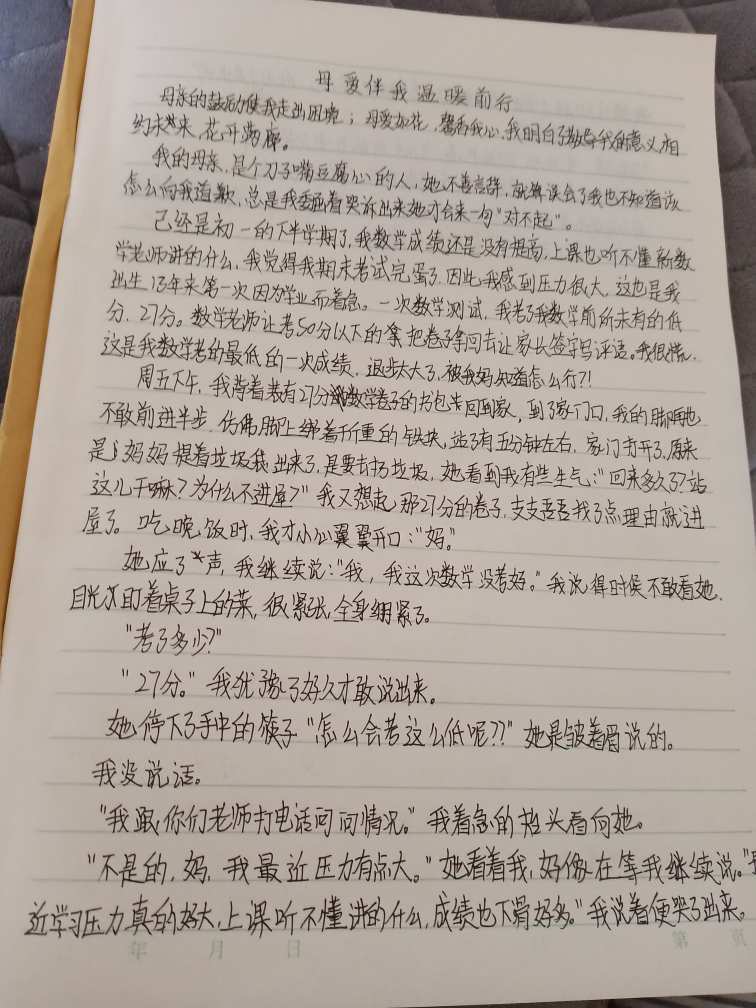 母爱伴我温暖前行
母亲的鼓励使我走出困境；母爱如花，馨香我心，我明白了教导我的意义相
约未来，花开满廊。
我的母亲，是个刀子嘴豆腐心的人，她不善言辞，就算误会了我也不知道该
怎么向我道歉，总是我委屈着哭诉出来她才会来一句“对不起”。
已经是初一的下半学期了，我数学成绩还是没有提高，上课也听不懂新数
学老师讲的什么，我觉得我期末考试完蛋了，因此我感到压力很大，这也是我
出生13年来第一次因为学业而着急。一次数学测试，我考了我数学前所未有的低
分，27分。数学老师让考50分以下的拿把卷子拿回去让家长签字写评语。我很慌，
这是我数学考的最低的一次成绩，退步太大了，被我妈知道怎么行？！
周五下午，我背着装有27分数学卷子的书包回到家，到了家门口，我的脚再也
不敢前进半步，仿佛脚上绑着千斤重的铁块，站了有五分钟左右，家门打开了，原来
是妈妈提着垃圾出来了，是要去扔垃圾，她看到我有些生气：“回来多久了？站
这儿干嘛？为什么不进屋？”我又想起那27分的卷子，支支吾吾找了点理由就进
屋了。吃晚饭时，我才小心翼翼开口：“妈。”
她应了声，我继续说：“我，我这次数学没考好。”我说得时侯不敢看她，
目光盯着桌子上的菜，很紧张，全身绷紧了。
“考了多少？”
“27分。”我犹豫了好久才敢说出来。
她停下了手中的筷子“怎么会考这么低呢？？”她是皱着眉说的。
我没说话。
“我跟你们老师打电话问问情况。”我着急的抬头看向她。
“不是的，妈，我最近压力有点大。”她看着我，好像在等我继续说。“最
近学习压力真的好大，上课听不懂讲的什么，成绩也下滑好多。”我说着便哭了出来。
年 月 日 第 页